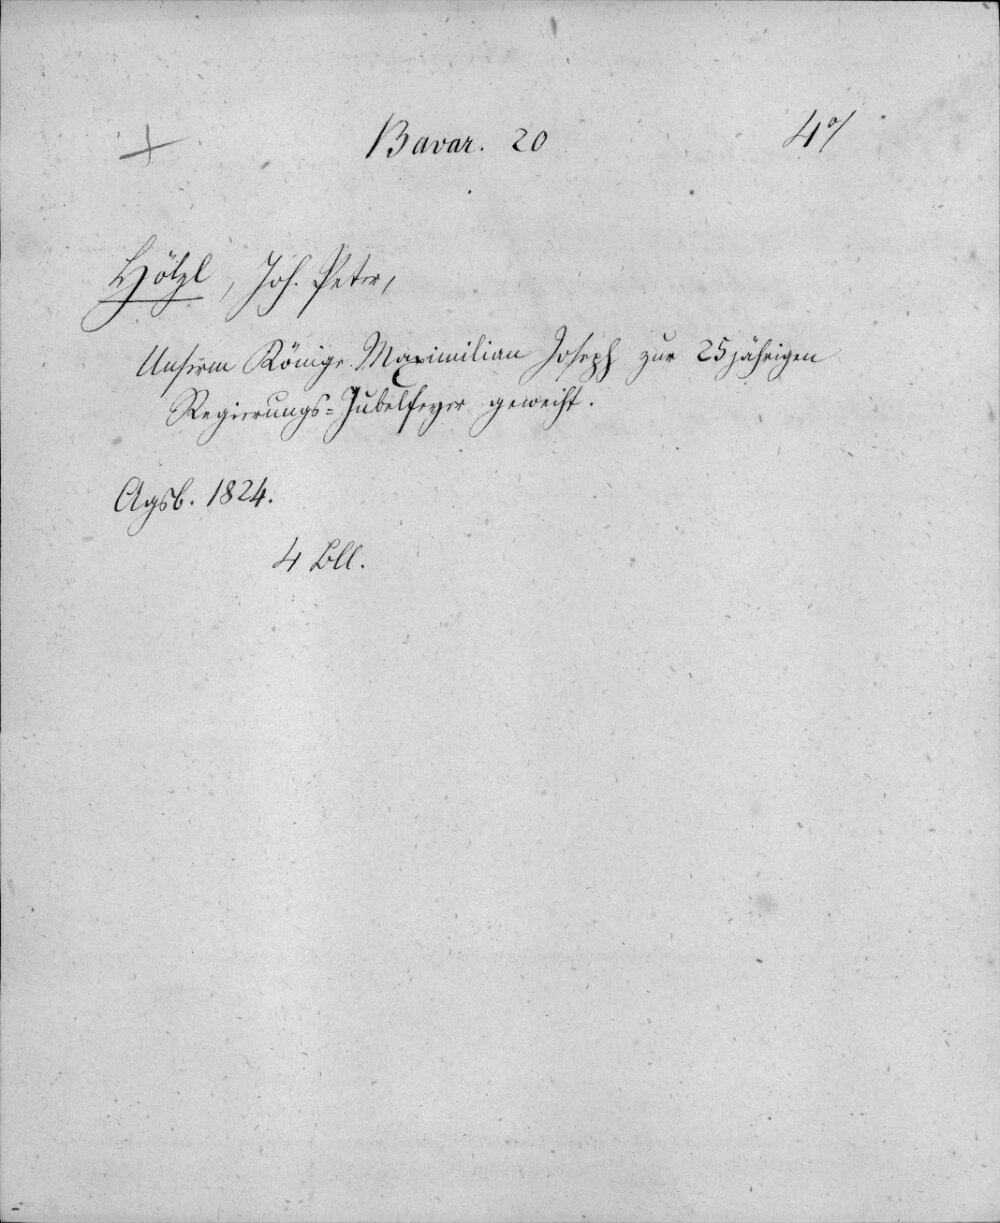 Bavar. 20 4°/
Hölzl, Joh. Peter,
Unserm Könige Maximilian Joseph zur 25jährigen
Regierungs=Jubelfeyer geweiht.
Agsb. 1824.
4 Bll.